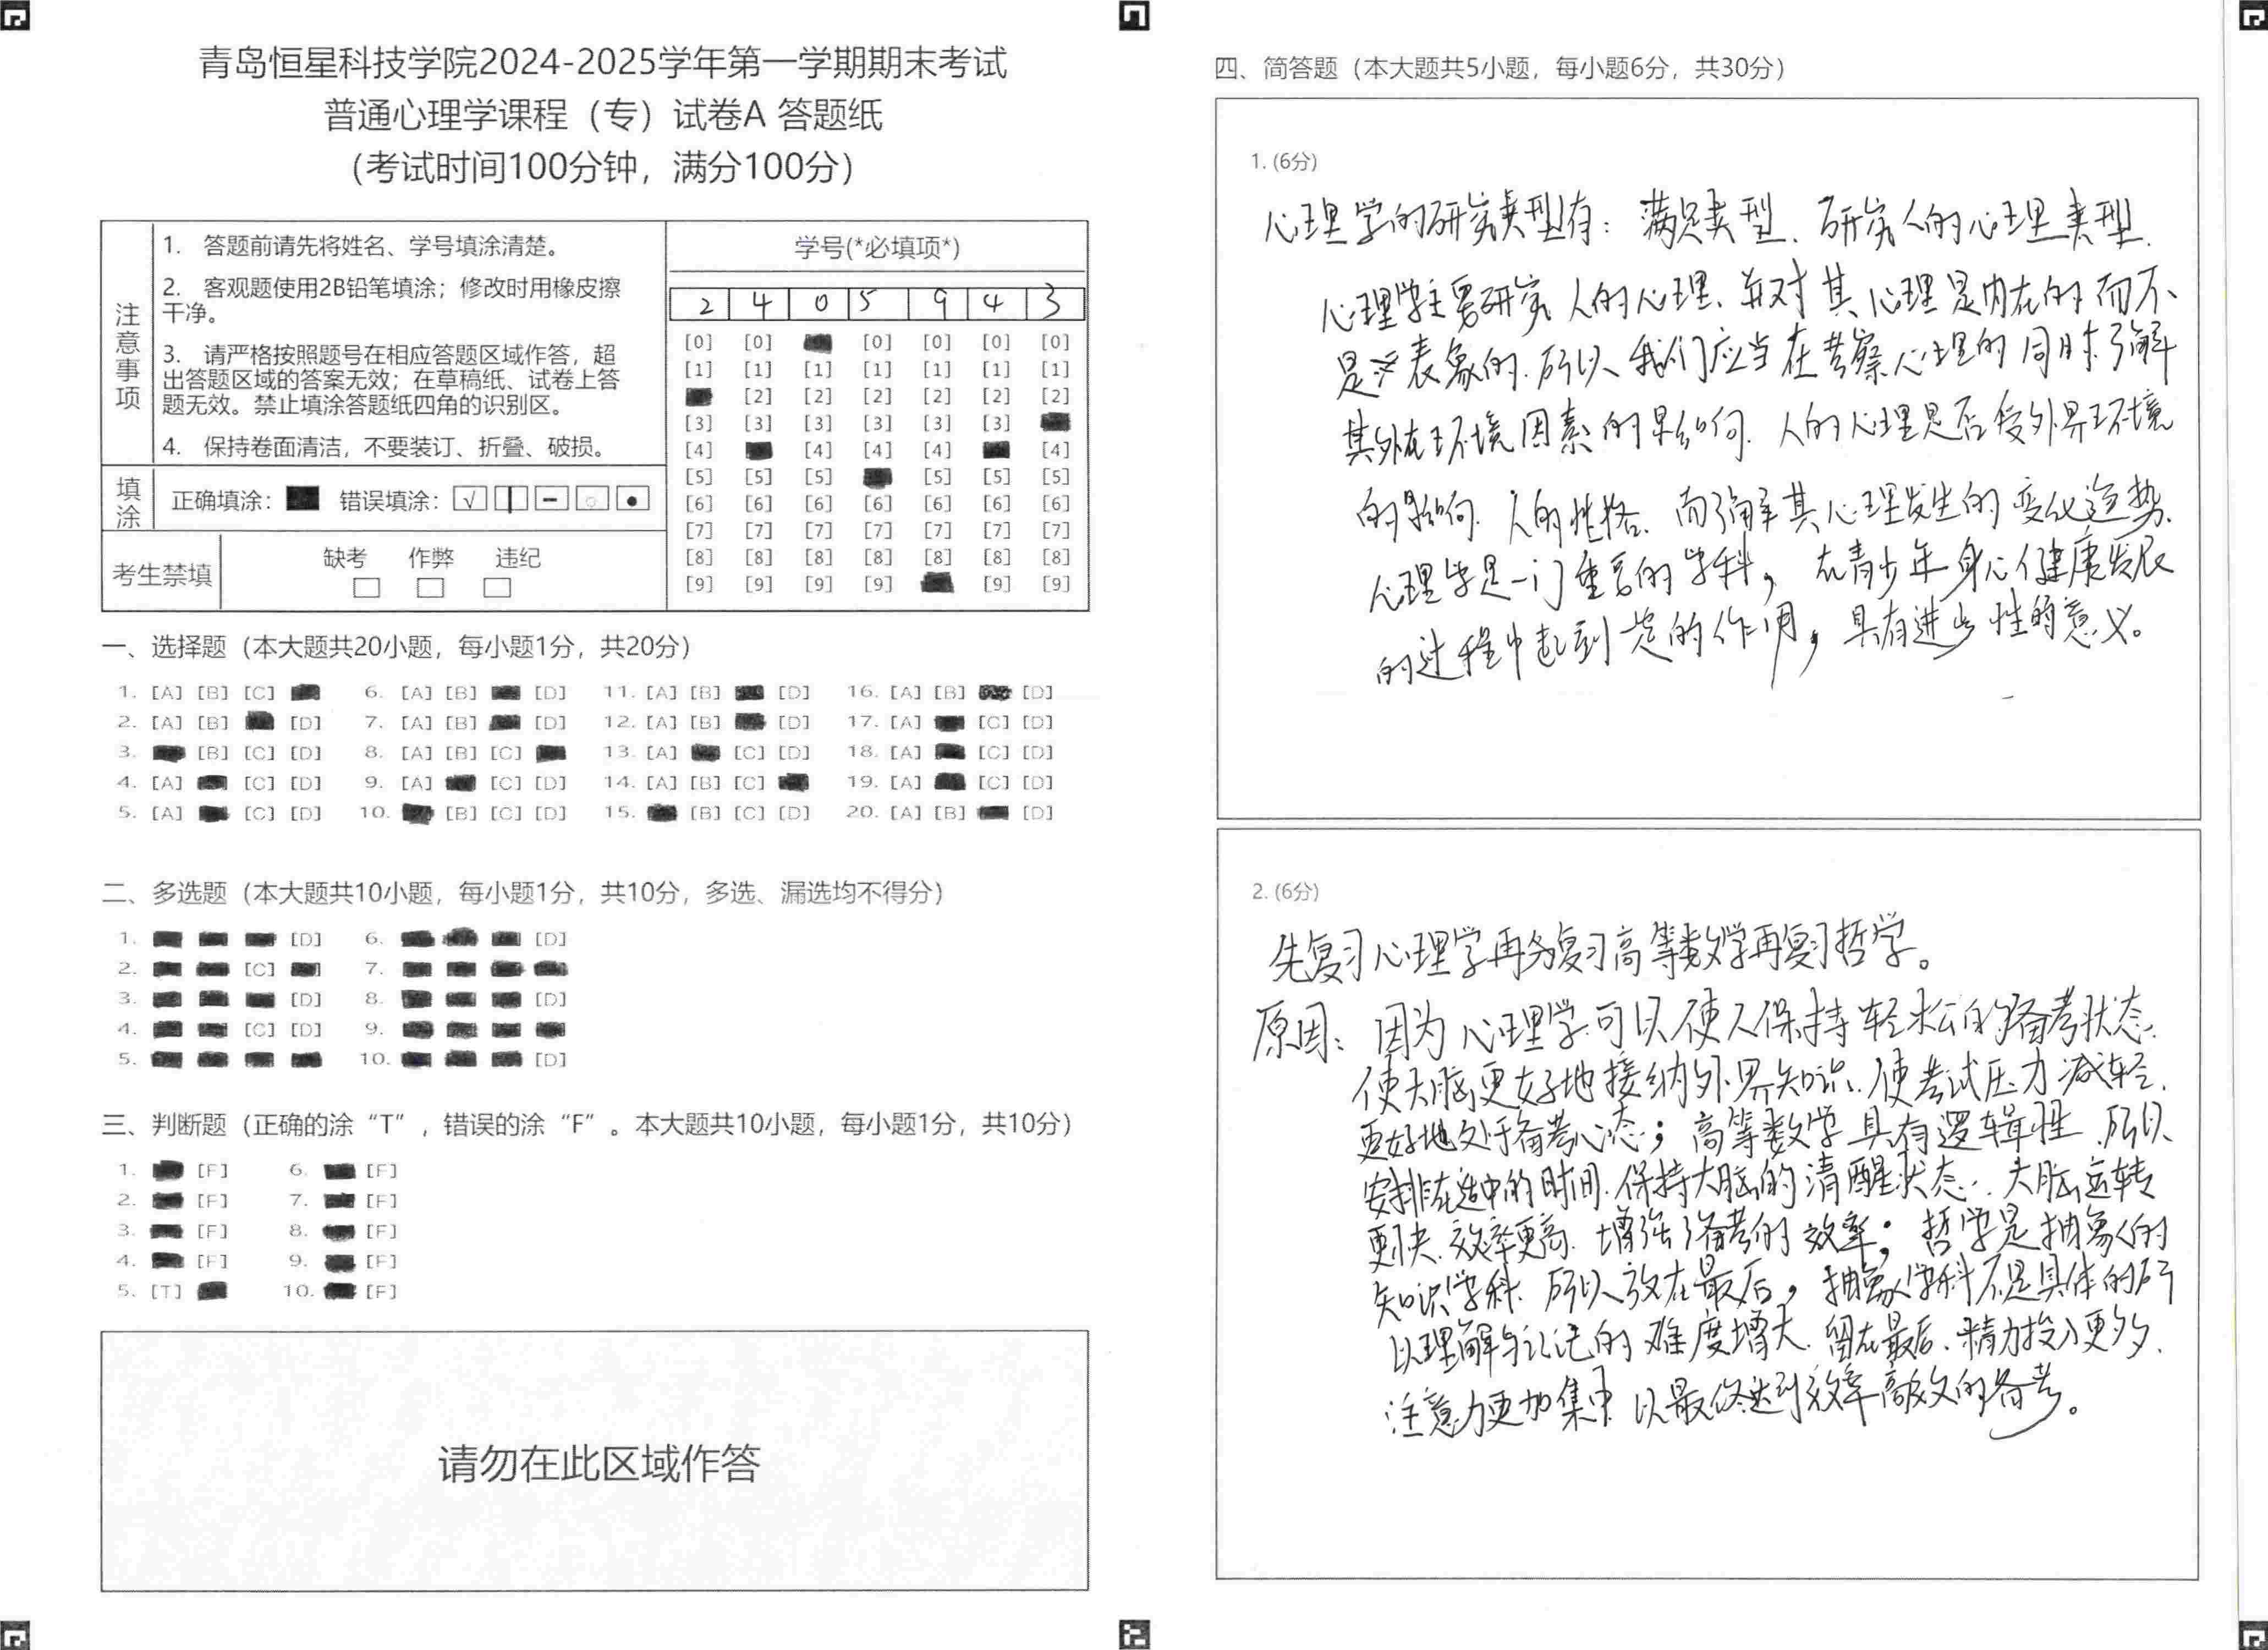 青岛恒星科技学院2024-2025学年第一学期期末考试
普通心理学课程（专）试卷A 答题纸
（考试时间100分钟，满分100分）
注意事项
1. 答题前请先将姓名、学号填涂清楚。
2. 客观题使用2B铅笔填涂；修改时用橡皮擦
干净。
3. 请严格按照题号在相应答题区域作答，超
出答题区域的答案无效；在草稿纸、试卷上答
题无效。禁止填涂答题纸四角的识别区。
4. 保持卷面清洁，不要装订、折叠、破损。
填涂 正确填涂： 错误填涂：
考生禁填 缺考 作弊 违纪
学号(*必填项*)
2 4 0 5 9 4 3
[0] [0] [0] [0] [0] [0]
[1] [1] [1] [1] [1] [1] [1]
[2] [2] [2] [2] [2] [2]
[3] [3] [3] [3] [3] [3]
[4] [4] [4] [4] [4]
[5] [5] [5] [5] [5] [5]
[6] [6] [6] [6] [6] [6] [6]
[7] [7] [7] [7] [7] [7] [7]
[8] [8] [8] [8] [8] [8] [8]
[9] [9] [9] [9] [9] [9]
一、选择题（本大题共20小题，每小题1分，共20分）
1. [A] [B] [C] 6. [A] [B] [D] 11. [A] [B] [D] 16. [A] [B] [D]
2. [A] [B] [D] 7. [A] [B] [D] 12. [A] [B] [D] 17. [A] [C] [D]
3. [B] [C] [D] 8. [A] [B] [C] 13. [A] [C] [D] 18. [A] [C] [D]
4. [A] [C] [D] 9. [A] [C] [D] 14. [A] [B] [C] 19. [A] [C] [D]
5. [A] [C] [D] 10. [B] [C] [D] 15. [B] [C] [D] 20. [A] [B] [D]
二、多选题（本大题共10小题，每小题1分，共10分，多选、漏选均不得分）
1. [D] 6. [D]
2. [C] 7.
3. [D] 8. [D]
4. [C] [D] 9.
5. 10. [D]
三、判断题（正确的涂“T”，错误的涂“F”。本大题共10小题，每小题1分，共10分）
1. [F] 6. [F]
2. [F] 7. [F]
3. [F] 8. [F]
4. [F] 9. [F]
5. [T] 10. [F]
请勿在此区域作答
四、简答题（本大题共5小题，每小题6分，共30分）
1. (6分)
心理学的研究类型有：满足类型、研究人的心理类型、
心理学主要研究人的心理、并对其心理是内在的而不
是表象的、所以我们应当在考察心理的同时了解
其外在环境因素的影响、人的心理是否受外界环境
的影响、人的性格、而了解其心理发生的变化趋势、
心理学是一门重要的学科，在青少年身心健康发展
的过程中起到一定的作用，具有进步性的意义。
2. (6分)
先复习心理学再复习高等数学再复习哲学。
原因：因为心理学可以使人保持轻松的备考状态、
使大脑更好地接纳外界知识、使考试压力减轻、
更好地处于备考心态；高等数学具有逻辑性、所以
安排在适中的时间、保持大脑的清醒状态、大脑运转
更快、效率更高、增强了备考的效率；哲学是抽象的
知识学科、所以放在最后，抽象学科不是具体的所
以理解与记忆的难度增大、留在最后、精力投入更多、
注意力更加集中 以最终达到效率高效的备考。